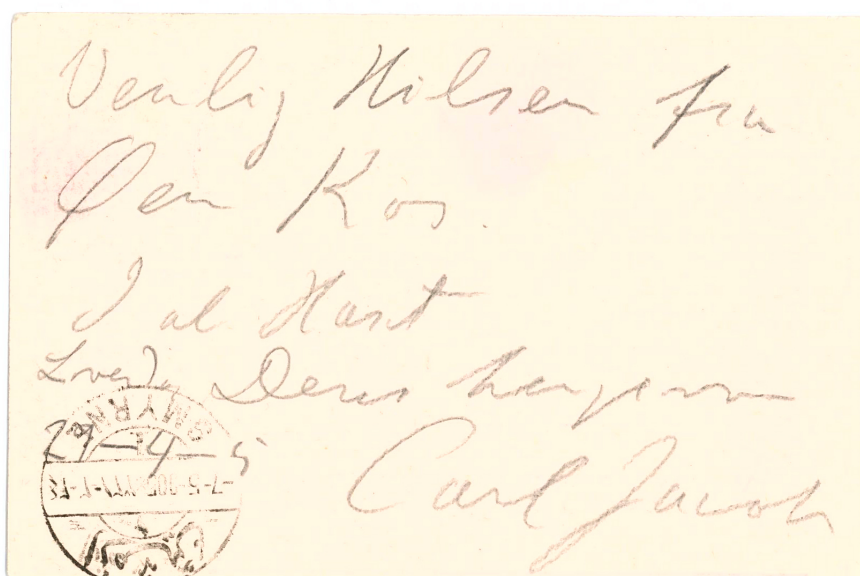 Venlig Hilsen fra
Øen Kos.
I al Hast
Deres hengivne
29-4-5 Carl Jacob
SMYRNE